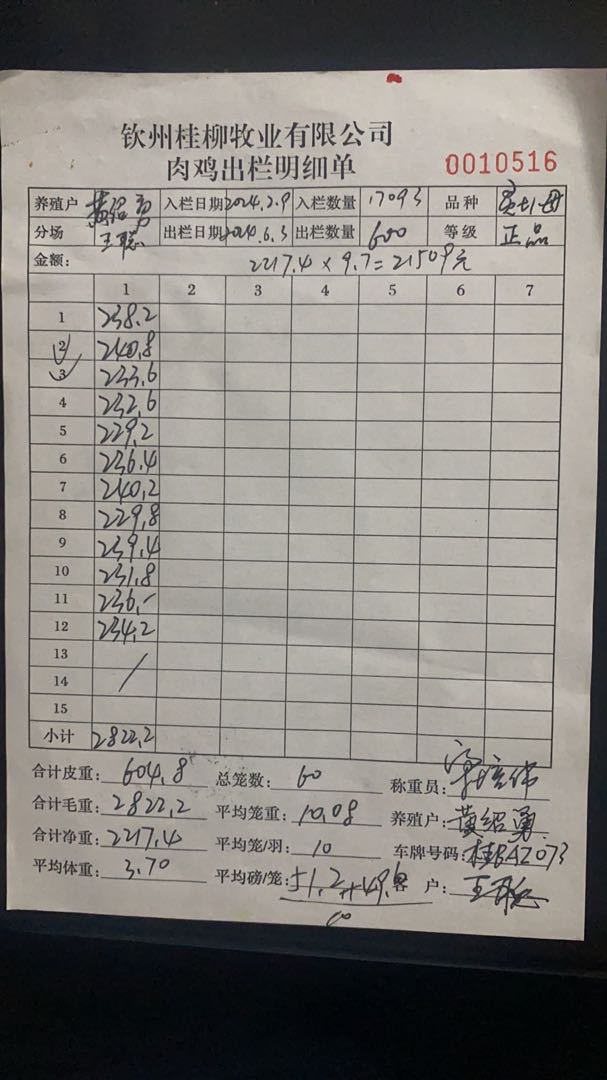 钦州桂柳牧业有限公司
肉鸡出栏明细单 0010516
养殖户 黄绍勇 入栏日期 2024.2.9 入栏数量 17093 品种
分场 王聪 出栏日期 2024.6.3 出栏数量 600 等级 正品
金额: 2217.4 × 9.7 = 21509元
1 2 3 4 5 6 7
1 238.2
2 240.8
3 233.6
4 232.6
5 229.2
6 236.4
7 240.2
8 229.8
9 239.4
10 231.8
11 236.-
12 234.2
13
14 /
15
小计 2822.2
合计皮重: 604.8 总笼数: 60 称重员:
合计毛重: 2822.2 平均笼重: 10.08 养殖户: 黄绍勇
合计净重: 2217.4 平均笼/羽: 10 车牌号码: 桂BAZ073
平均体重: 3.70 平均磅/笼: 户: 王聪